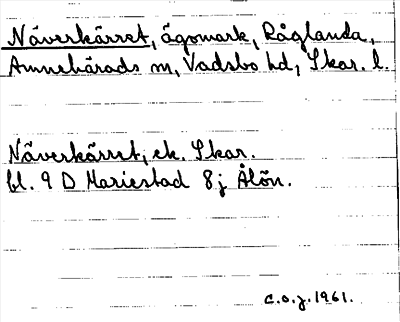 Näverkärret, ägomark, Råglanda,
Amnehärads sn, Vadsbo hd, Skar. l.
Näverkärret, ek. Skar.
bl. 9 D Mariestad 8j Ålön.
c.o.j. 1961.